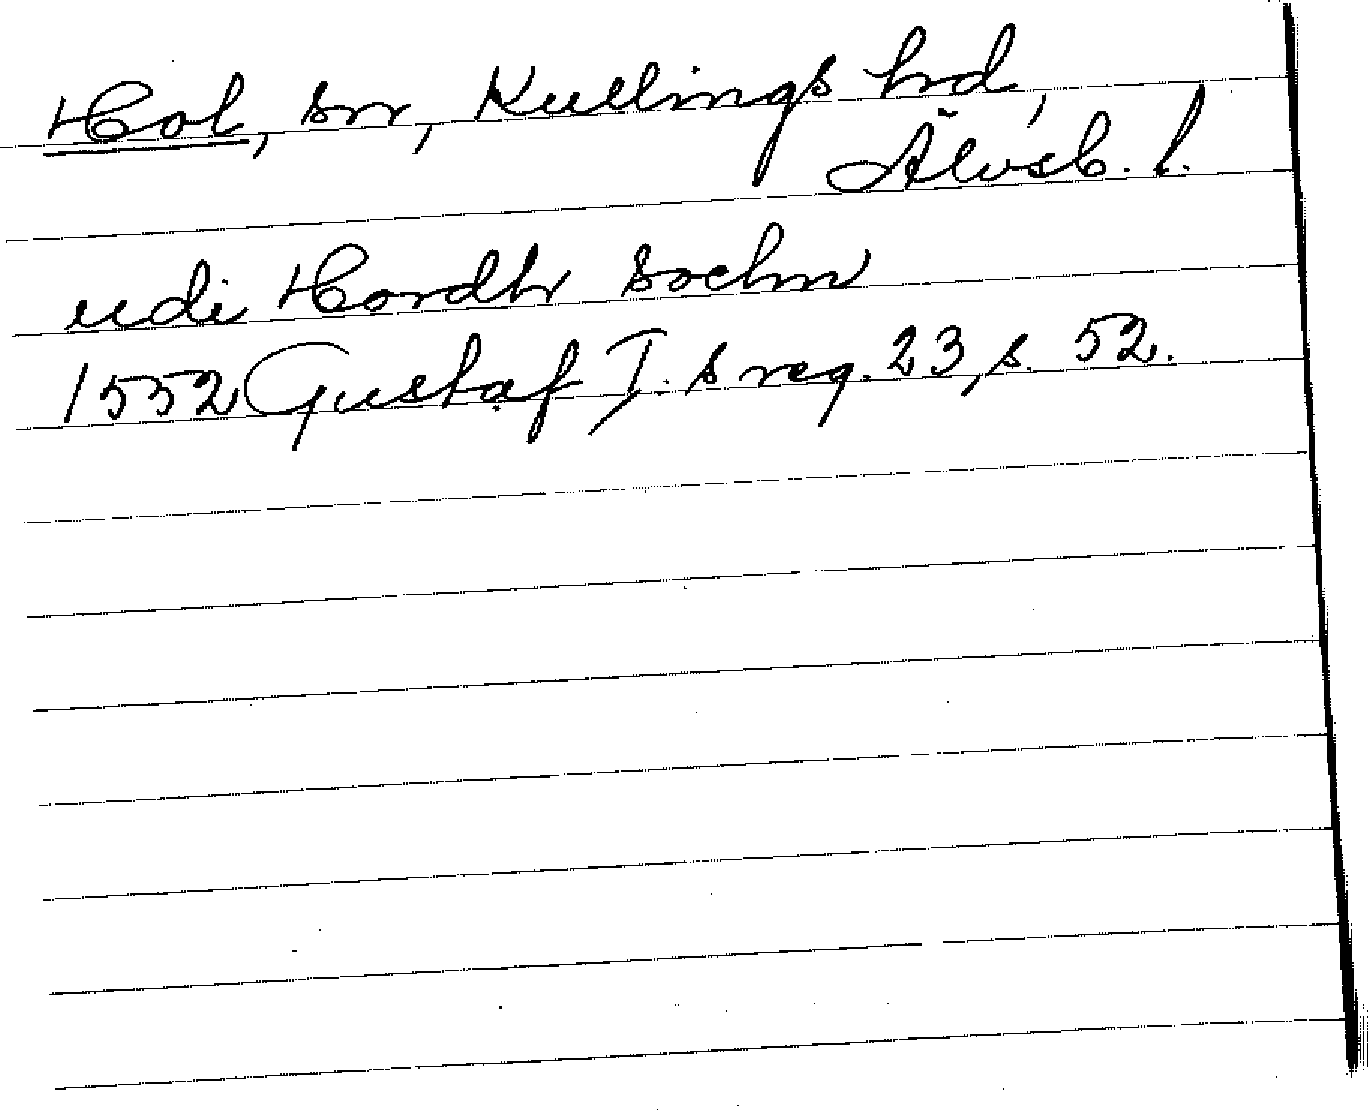 Hol, sn, Kullings hd,
Älvsb. l.
udi Hordh sochn
1552 Gustaf I. s reg. 23, s. 52.